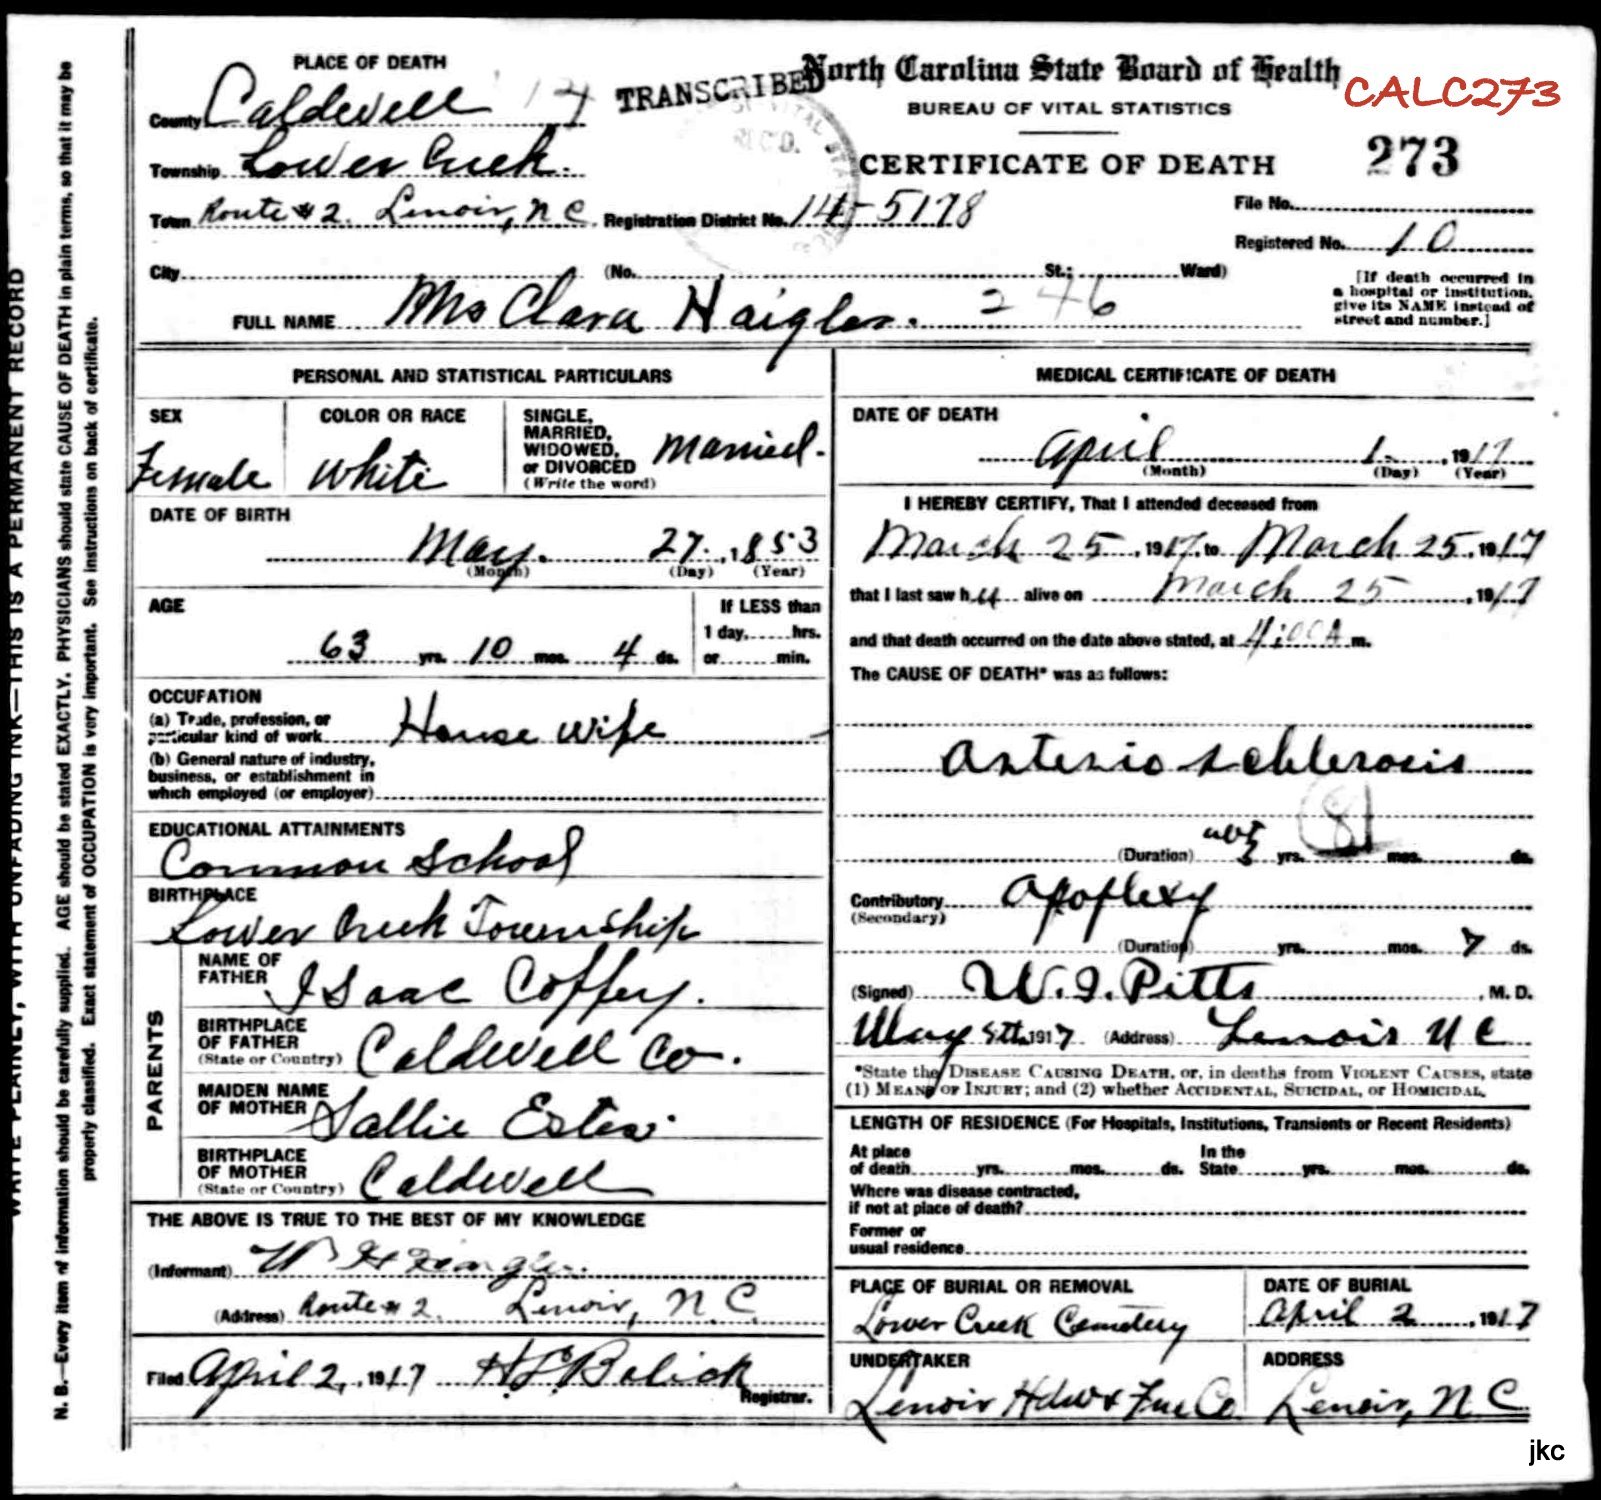 PLACE OF DEATH
North Carolina State Board of Health
CALC273
TRANSCRIBED
BUREAU OF VITAL STATISTICS
County Caldwell
CERTIFICATE OF DEATH
273
Township Lower Creek.
Town Route #2. Lenoir, NC Registration District No. 14-5178
File No.
Registered No. 10
City (No. St.; Ward)
[If death occurred in
a hospital or institution,
give its NAME instead of
street and number.]
FULL NAME Mrs Clara Haigler. 276
PERSONAL AND STATISTICAL PARTICULARS
SEX
Female
COLOR OR RACE
White
SINGLE,
MARRIED,
WIDOWED,
or DIVORCED
(Write the word)
Married.
DATE OF BIRTH
May. 27. 1853
(Month) (Day) (Year)
AGE
63 yrs. 10 mos. 4 ds.
If LESS than
1 day, hrs.
or min.
OCCUPATION
(a) Trade, profession, or
particular kind of work House wife
(b) General nature of industry,
business, or establishment in
which employed (or employer)
EDUCATIONAL ATTAINMENTS
Common School
BIRTHPLACE
Lower Creek Township
PARENTS
NAME OF
FATHER Isaac Coffey.
BIRTHPLACE
OF FATHER
(State or Country) Caldwell Co.
MAIDEN NAME
OF MOTHER Sallie Estes.
BIRTHPLACE
OF MOTHER
(State or Country) Caldwell
THE ABOVE IS TRUE TO THE BEST OF MY KNOWLEDGE
(Informant)
(Address) Route #2. Lenoir, N C.
Filed April 2, 1917 H. S. Bolick
Registrar.
MEDICAL CERTIFICATE OF DEATH
DATE OF DEATH
April 1. 1917
(Month) (Day) (Year)
I HEREBY CERTIFY, That I attended deceased from
March 25, 1917, to March 25, 1917
that I last saw her alive on March 25, 1917
and that death occurred on the date above stated, at 4:00 A m.
The CAUSE OF DEATH* was as follows:
Arterio schlerosis
81
(Duration) yrs. mos. ds.
Contributory Apoplexy
(Secondary)
(Duration) yrs. mos. 7 ds.
(Signed) W. J. Pitts, M. D.
May 5th 1917 (Address) Lenoir N C
*State the DISEASE CAUSING DEATH, or, in deaths from VIOLENT CAUSES, state
(1) MEANS OF INJURY; and (2) whether ACCIDENTAL, SUICIDAL, or HOMICIDAL.
LENGTH OF RESIDENCE (For Hospitals, Institutions, Transients or Recent Residents)
At place
of death yrs. mos. ds.
In the
State yrs. mos. ds.
Where was disease contracted,
if not at place of death?
Former or
usual residence
PLACE OF BURIAL OR REMOVAL
Lower Creek Cemetery
DATE OF BURIAL
April 2, 1917
UNDERTAKER
Lenoir Hdw & Fur Co.
ADDRESS
Lenoir, N C.
jkc
WRITE PLAINLY, WITH UNFADING INK—THIS IS A PERMANENT RECORD
N. B.—Every item of information should be carefully supplied. AGE should be stated EXACTLY. PHYSICIANS should state CAUSE OF DEATH in plain terms, so that it may be
properly classified. Exact statement of OCCUPATION is very important. See instructions on back of certificate.